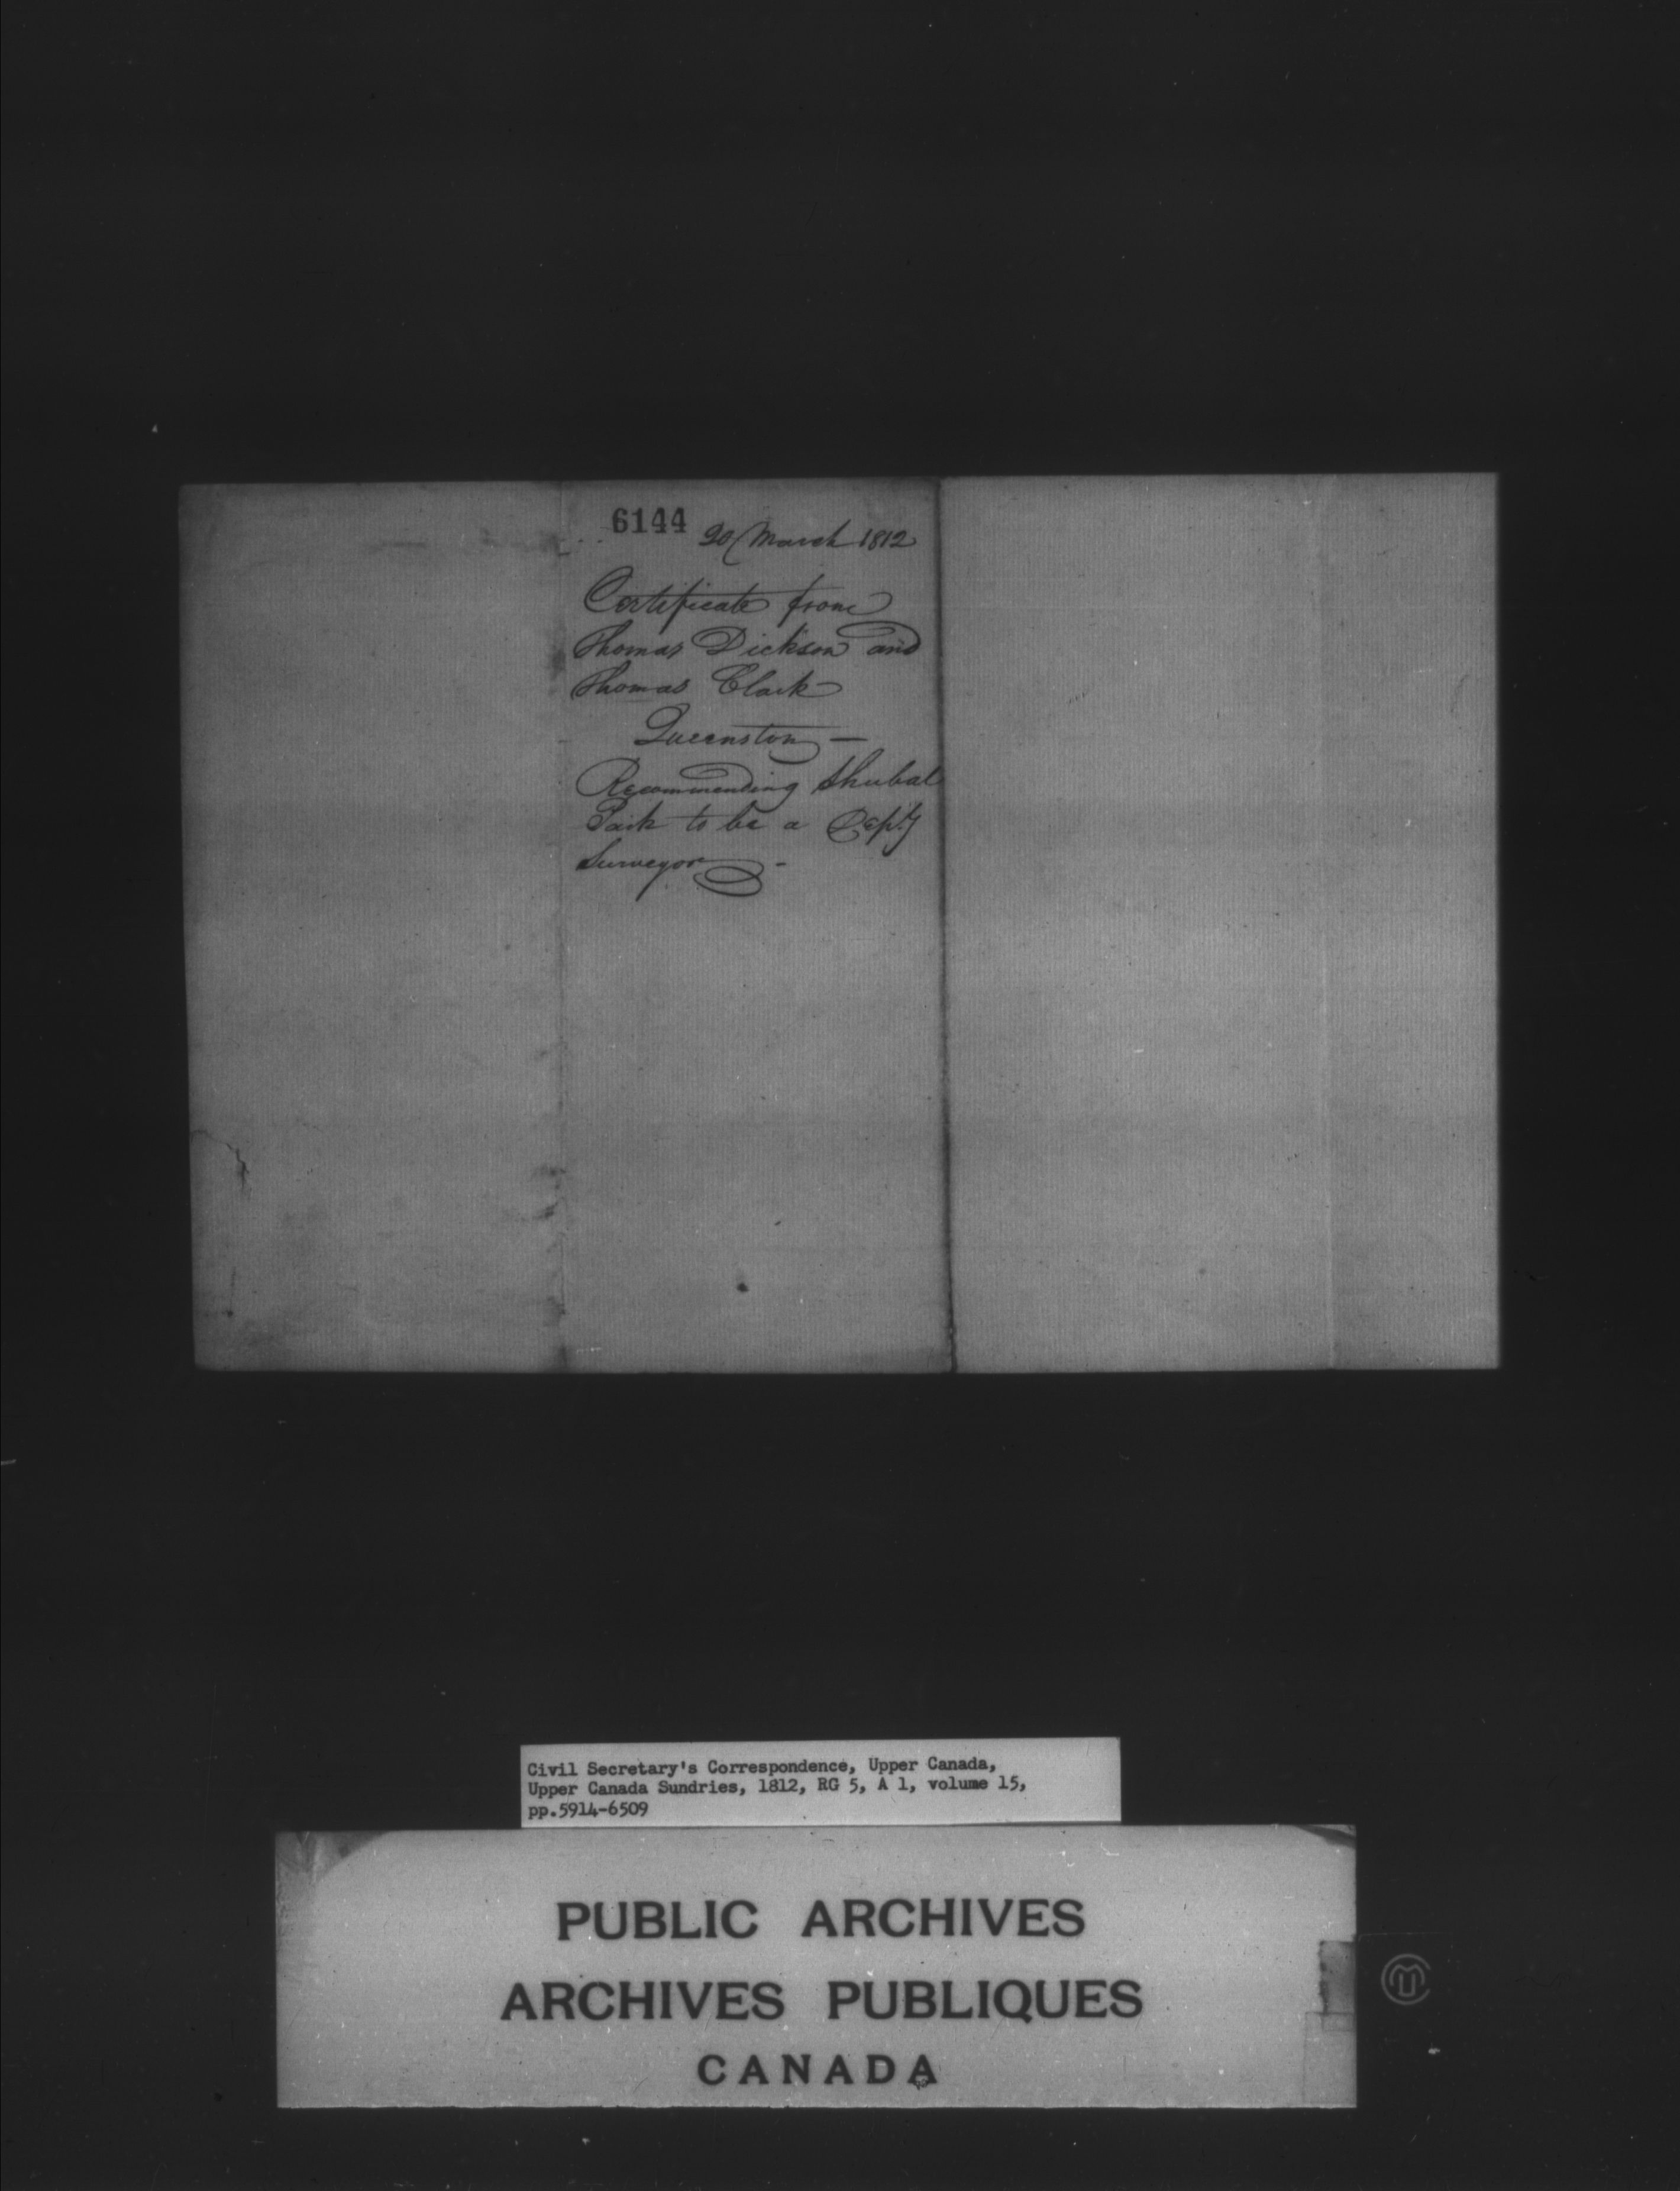 6144 20 March 1812
Certificate from
Thomas Dickson and
Thomas Clark
Queenston —
Recommending Shubal
Park to be a Depty
Surveyor -
Civil Secretary's Correspondence, Upper Canada,
Upper Canada Sundries, 1812, RG 5, A 1, volume 15,
pp.5914-6509
PUBLIC ARCHIVES
ARCHIVES PUBLIQUES
CANADA